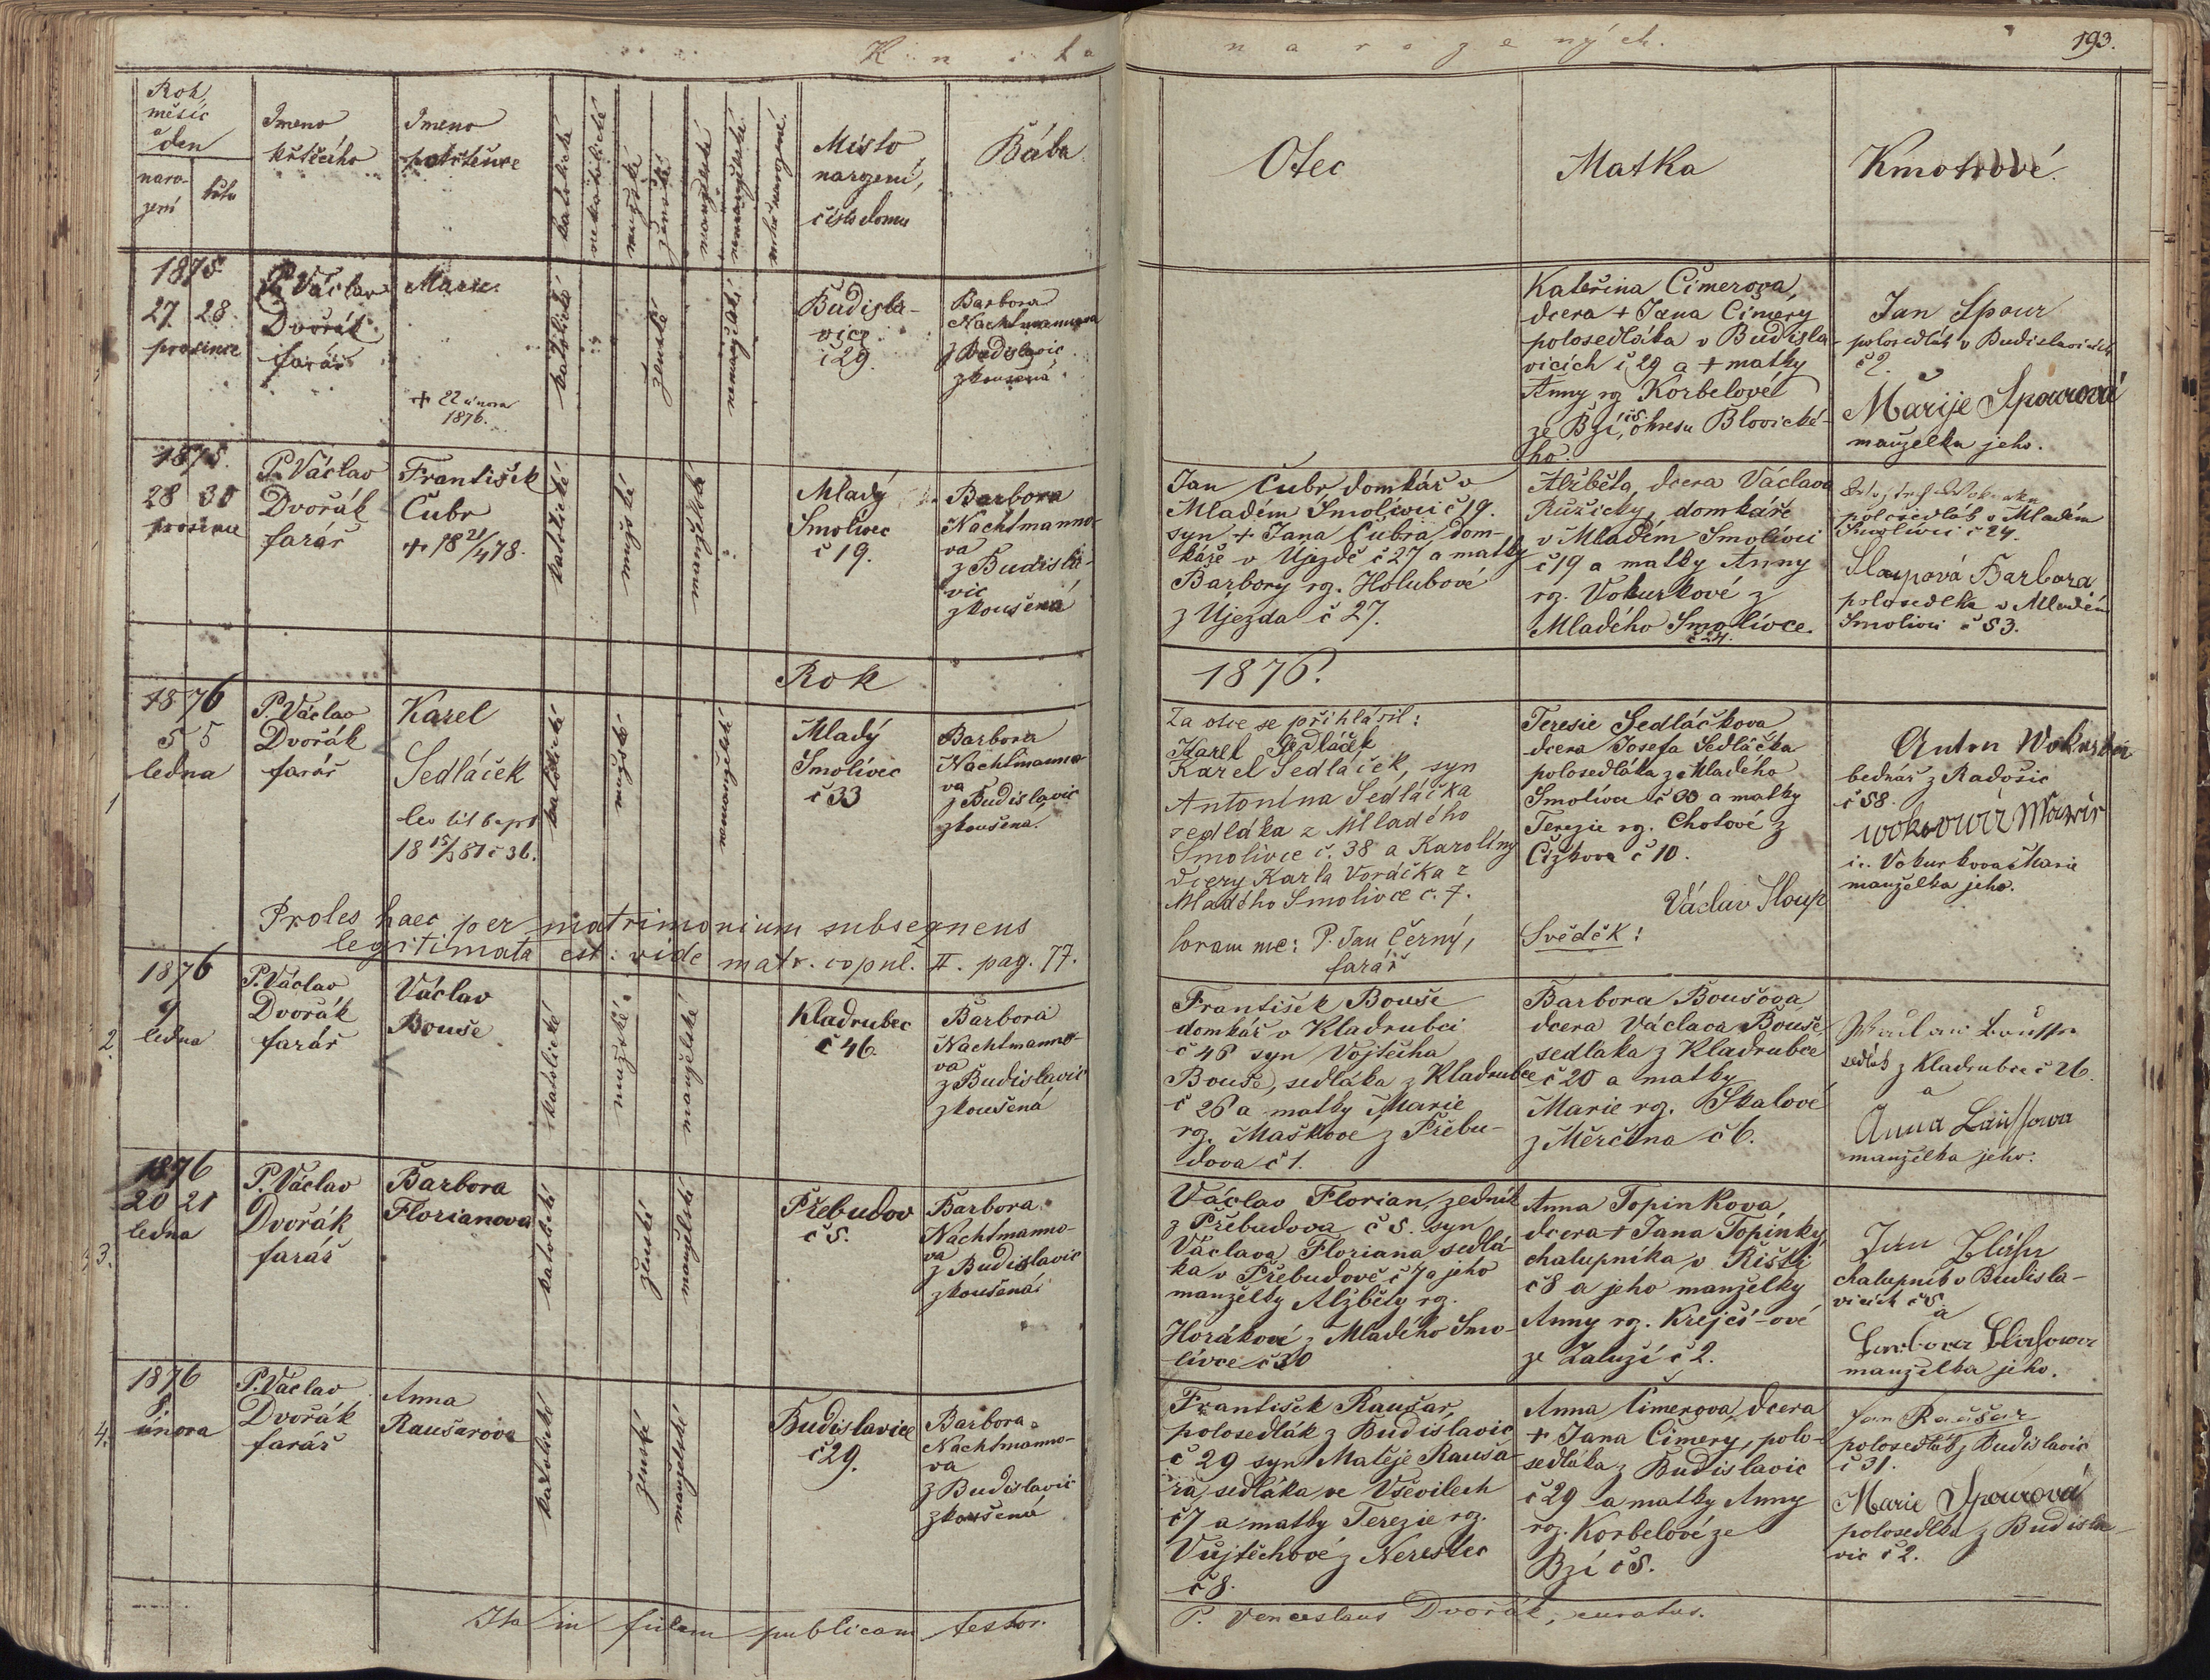 Kniha
narozených.
193.
Rok,
měsíc
a
den
naro-
zení
křtu
Jmeno
křtícího
Jmeno
pokřtěnce
katolické
nekatolické
mužské
ženské
manželské
nemanželské
mrtvě narozené.
Místo
narození,
číslo domu
Bába
Otec
Matka
Kmotrové.
1875
27 28
prosince
P. Václav
Dvořák
farář
Marie.
+ 22 února
1876.
katolické
ženské
nemanželské
Budisla-
vice
č 29.
Barbora
Nachtmannova
z Budislavic
zkoušená
Kateřina Čimerova,
dcera + Jana Čimery
polosedláka v Budisla-
vicích č 29 a + matky
Anny rz Korbelové
ze Bzí, č5. okresu Blovické-
ho.
Jan Spour
polosedlák v Budislavicích
č 2.
Marije Spourová
manželka jeho.
1875.
28 30
prosince
P. Václav
Dvořák
farář
František
Čubr
+ 18 21/4 78.
katolické
mužské
manželské
Mladý
Smolivec
č 19.
Barbora
Nachtmanno-
va
z Budisla-
vic
zkoušená
Jan Čubr, domkář v
Mladém Smolivci č 19.
syn + Jana Čubra, dom-
káře v Újezdě č 27 a matky
Barbory rz. Holubové
z Újezda č 27.
Alžběta, dcera Václava
Růžičky, domkáře
v Mladém Smolivci
č 19 a matky Anny
rz. Vokurkové z
Mladého Smolivce.
č 24.
polosedlák v Mladém
Smolivci č 24.
Sloupová Barbora
polosedlka v Mladém
Smolivci č 53.
Rok
1876.
1
1876
5 5
ledna
P. Václav
Dvořák
farář
Karel
Sedláček
lev lit bapt
18 15/3 81 č 36.
katolické
mužské
nemanželské
Mladý
Smolivec
č 33
Barbora
Nachtmanno-
va
z Budislavic
zkoušená.
Za otce se přihlásil:
Karel Sedláček
Karel Sedláček, syn
Antonína Sedláčka
sedláka z Mladého
Smolivce č. 38 a Karolíny
dcery Karla Voráčka z
Mladého Smolivce č. 7.
Coram me: P. Jan Černý,
farář
Teresie Sedláčkova
dcera Josefa Sedláčka
polosedláka z Mladého
Smolivce č 30 a matky
Terezie rz. Chotové z
Čížkova č 10.
Václav Sloup
Svědek:
Anton Wokurka
bednář z Radošic
č 58.
i. Vokurkova Marie
manželka jeho.
Proles haec per matrimonium subsequens
legitimata est: vide matr. copul. II. pag. 77.
2.
1876
9
ledna
P. Václav
Dvořák
farář
Václav
Bouše
katolické
mužské
manželské
Kladrubec
č 46
Barbora
Nachtmanno-
va
z Budislavic
zkoušená
František Bouše
domkář v Kladrubci
č 46 syn Vojtěcha
Bouše, sedláka z Kladrubce
č 26 a matky Marie
rz. Maškové z Přebu-
dova č 1.
Barbora Boušova
dcera Václava Bouše
sedláka z Kladrubce
č 20 a matky
Marie rz. Skalové
z Měrčína č 6.
sedlák z Kladrubce č 26.
a
Anna
manželka jeho.
3.
1876
20 21
ledna
P. Václav
Dvořák
farář
Barbora
Florianova
katolické
ženské
manželské
Přebudov
č 5.
Barbora
Nachtmanno-
va
z Budislavic
zkoušená
Václav Florian, zedník
z Přebudova č 5. syn
Václava Floriana sedlá-
ka v Přebudově č 7 a jeho
manželky Alžběty rz.
Horákové z Mladého Smo-
livce č 30
Anna Topinkova,
dcera + Jana Topinky,
chalupníka v Říšti
č 8 a jeho manželky
Anny rz. Krejčí-ové
ze Zaluží č 2.
Jan
chalupník v Budisla-
vicích č 5
a
manželka jeho.
4.
1876
8.
února
P. Václav
Dvořák
farář
Anna
Raušarova
katolické
ženské
manželské
Budislavice
č 29.
Barbora
Nachtmanno-
va
z Budislavic
zkoušená
František Raušar,
polosedlák z Budislavic
č 29 syn Matěje Rauša-
ra, sedláka ve Vševilech
č 7 a matky Terezie rz.
Vujtěchové z Nerestec
č 8.
Anna Čimerova, dcera
+ Jana Čimery, polo-
sedláka z Budislavic
č 29 a matky Anny
rz. Korbelové ze
Bzí č 5.
Jan Raušar
polosedlák z Budislavic
č 31.
Marie Spourová
polosedlka z Budisla-
vic č 2.
Ita in fidem publicam testor.
P. Venceslaus Dvořák, curatus.